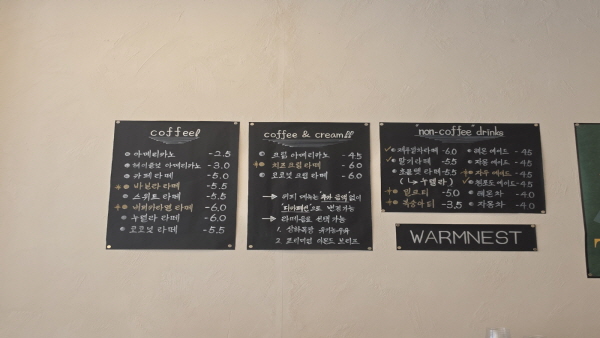 coffee
아메리카노 -2.5
아메리카노 -3.0
카페라떼 -5.0
바닐라 라떼 -5.5
스위트 라떼 -5.5
라떼 -6.0
누텔라 라떼 -6.0
코코넛 라떼 -5.5
coffee & cream
크림 아메리카노 -4.5
치즈크림라떼 -6.0
코코넛 크림 라떼 -6.0
위의 메뉴는
디카페인으로 변경가능
선택가능
1.
2. 프리미엄 아몬드 브리즈
non-coffee drinks
라떼 -6.0
말차라떼 -5.5
초콜렛라떼 -5.5
(↳누텔라)
밀크티 -5.0
복숭아티 -3.5
레몬 에이드 -4.5
자몽 에이드 -4.5
자두 에이드 -4.5
청포도 에이드 -4.5
레몬차 -4.0
자몽차 -4.0
WARMNEST